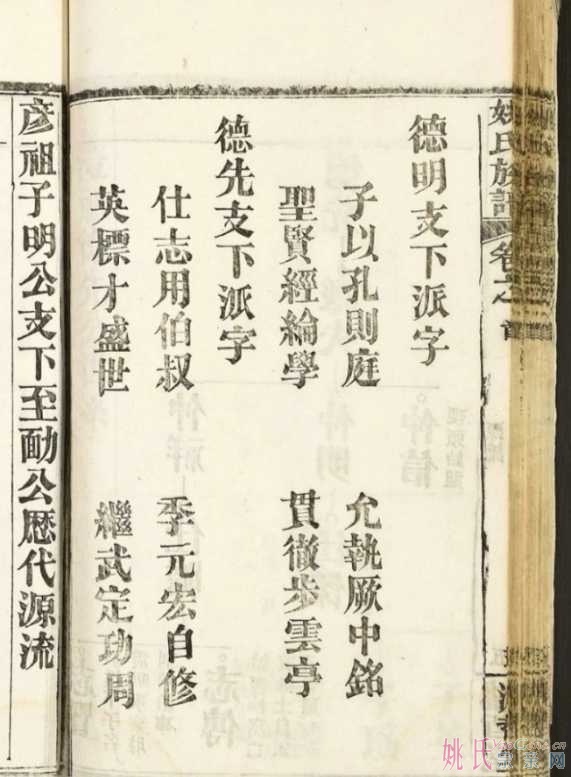 姚氏族譜 卷之首
德明支下派字
子以孔則庭 允執厥中銘
聖賢經綸學 貫徹步雲亭
德先支下派字
仕志用伯叔 季元宏自修
英標才盛世 繼武定功周
彦祖子明公支下至勔公歷代源流
姚氏